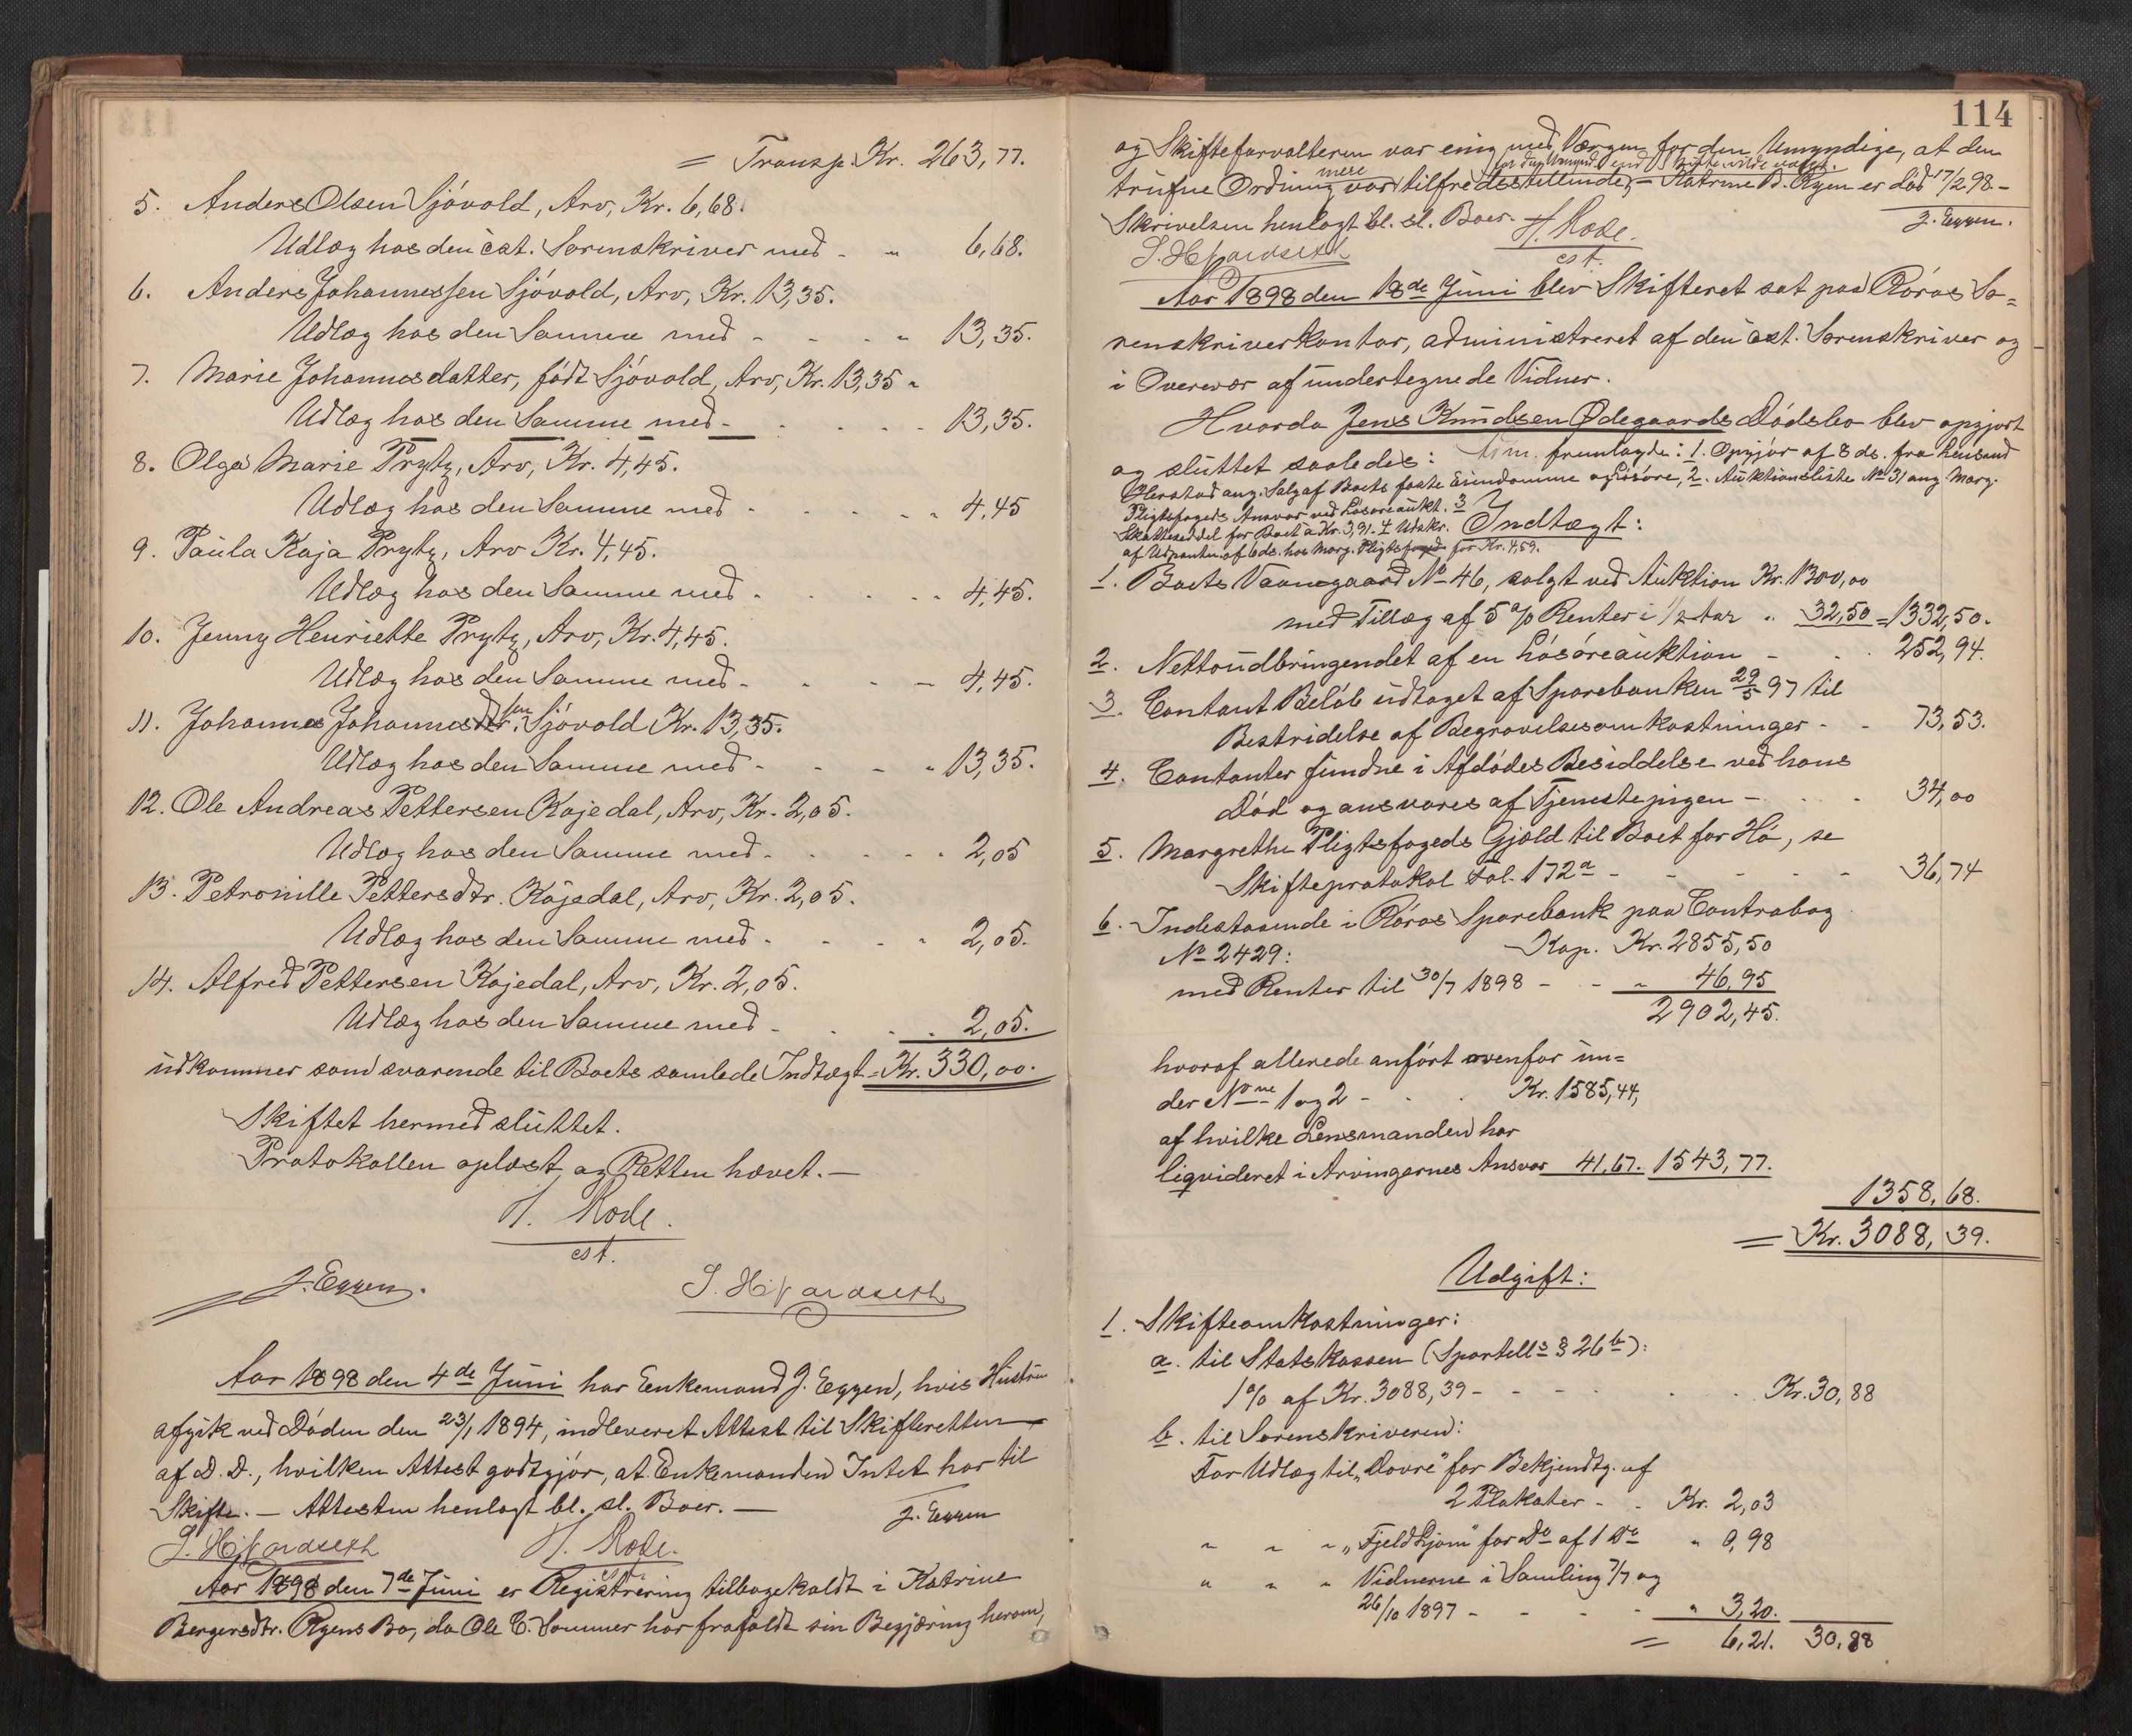 = Transp. Kr. 263,77.
5. Anders Olsen Sjövold, Arv, Kr. 6,68.
Udlæg hos den cst. Sorenskriver med - " 6,68.
6. Anders Johannessen Sjövold, Arv, Kr. 13,35.
Udlæg hos den Samme med - - - " 13,35.
7. Marie Johannesdatter, födt Sjövold, Arv, Kr. 13,35 "
Udlæg hos den Samme med - - - - - 13,35.
8. Olga Marie Prytz, Arv, Kr. 4,45.
Udlæg hos den Samme med - - - - " 4,45
9. Paula Kaja Prytz, Arv Kr. 4,45.
Udlæg hos den Samme med - - - - " 4,45.
10. Jenny Henriette Prytz, Arv, Kr. 4,45.
Udlæg hos den Samme med - - - - 4,45.
11. Johannes Johannessen Sjövold Kr. 13,35.
Udlæg hos den Samme med - - - " 13,35.
12. Ole Andreas Pettersen Kojedal, Arv, Kr. 2,05.
Udlæg hos den Samme med - - - - " 2,05
13. Petronille Pettersdtr. Kojedal, Arv, Kr. 2,05.
Udlæg hos den Samme med - - - " 2,05.
14. Alfred Pettersen Kojedal, Arv, Kr. 2,05.
Udlæg hos den Samme med - - - " 2,05.
udkommer som svarende til Boets samlede Indtægt = Kr. 330,00.
Skiftet hermed sluttet.
Protokollen oplæst og Retten hævet. —
H. Rode.
cst.
J. Eggen. S. Hjfardseth
Aar 1898 den 4de Juni har Enkemand J. Eggen, hvis Hustru
afgik ved Döden den 23/1 1894, indleveret Attest til Skifteretten
af D. D., hvilken Attest godtgjör, at Enkemanden Intet har til
Skifte. — Attesten henlagt bl. sl. Boer. — J. Eggen
S. Hjfardseth H. Rode.
cst.
Aar 1898 den 7de Juni er Registrering tilbagekaldt i Katrine
Bergersdtr. Ryens Bo, da Ole E. Sommer har frafaldt sin Begjæring herom,
114
og Skifteforvalteren var enig med Værgen for den Umyndige, at den
for den Umynd. end Skifte vilde være.
trufne Ordning var mere tilfredsstillende, — Katrine B. Ryen er död 17/2 98. —
Skrivelsen henlagt bl. sl. Boer. H. Rode. J. Eggen.
S. Hjfardseth cst.
Aar 1898 den 18de Juni blev Skifteret sat paa Röros So=
renskriverkontor, administreret af den cst. Sorenskriver og
i Overvær af undertegnede Vidner.
Hvorda Jens Knudsen Ødegaards Dödsbo blev opgjort
og sluttet saaledes: fremlagde: 1. Opgjör af 8 ds. fra Lensmd
Olerstad ang. Salg af Boets faste Eiendomme og Lösöre, 2. Auktionsliste No 31 ang. Marg.
Pligtsfogeds Ansvar ved Lösöreaukt. 3
Skatteseddel for Boet a Kr. 3,91. 4 Udskr. Indtægt:
af Udpantn. af 6 ds. hos Marg. Pligtsfoged for Kr. 4,59.
1. Boets Vaanegaard No 46, solgt ved Auktion Kr. 1300,00
med Tillæg af 5 % Renter i 1/2 Aar " 32,50 = 1332,50.
2. Nettoudbringendet af en Lösöreauktion - - - 252,94.
3. Contant Belöb udtaget af Sparebanken 29/5 97 til
Bestridelse af Begravelsesomkostninger - - 73,53.
4. Contanter fundne i Afdödes Besiddelse ved hans
Död og ansvares af Tjenestepigen - - - 34,00
5. Margrethe Pligtsfogeds Gjæld til Boet for Hö, se
Skifteprotokol Fol. 172a - - - - - 36,74
6. Indestaaende i Röros Sparebank paa Contrabog
No 2429: Kap. Kr. 2855,50
med Renter til 30/7 1898 - - " 46,95
2902,45.
hvoraf allerede anfört ovenfor un=
der Nome 1 og 2 - - . Kr. 1585,44,
af hvilke Lensmanden har
liqvideret i Arvingernes Ansvar 41,67. 1543,77.
1358,68.
= Kr. 3088,39.
Udgift:
1. Skifteomkostninger:
a. til Statskassen (Sportell: § 26b):
1% af Kr. 3088,39 - - - - - . Kr. 30,88
b. til Sorenskriveren:
For Udlæg til "Dovre" for Bekjendtg. af
2 Plakater - . Kr. 2,03
" " " "Fjeldljom" for Do af 1 Do " 0,98
" " " Vidnerne i Samling 7/7 og
26/10 1897 - - - - " 3,20.
= 6,21. 30,88